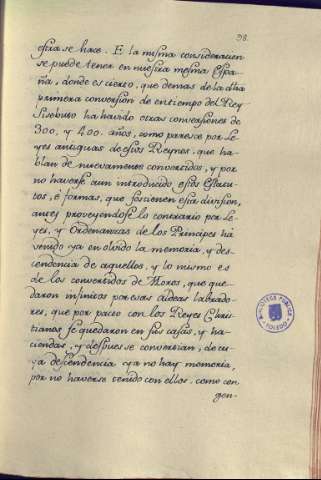 98.
esfra se hace. E la misma consideracion
se puede tener en nuestra mesma Espa-
ña, donde es cierto, que demas de la dha
primera conversion de en tiempo del Rey
Sisebuto ha havido otras conversiones de
300, y 400. años, como parese por le-
yes antiguas de estos Reynos, que ha-
blan de nuevamente convertidos, y por
no haverse aun introducido estos Estatu-
tos, é formas, que sostienen esta division,
antes proveyendose lo contrario por le-
yes, y Ordenanzas de los Principes há
venido ya en olvido la memoria, y des-
cendencia de aquellos, y lo mismo es
de los convertidos de Moros, que que-
daron infinitos por esas aldeas labrado-
res, que por pacto con los Reyes Chris-
tianos se quedaron en sus casas, y ha-
ciendas, y despues se convertian, de cu-
ya descendencia ya no hay memoria,
por no haverse tenido con ellos, como con
gen-
BIBLIOTECA PUBLICA
TOLEDO